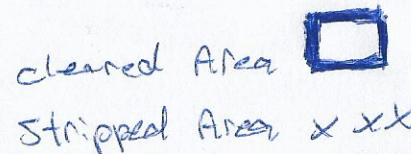 cleared Area
Stripped Area x x x